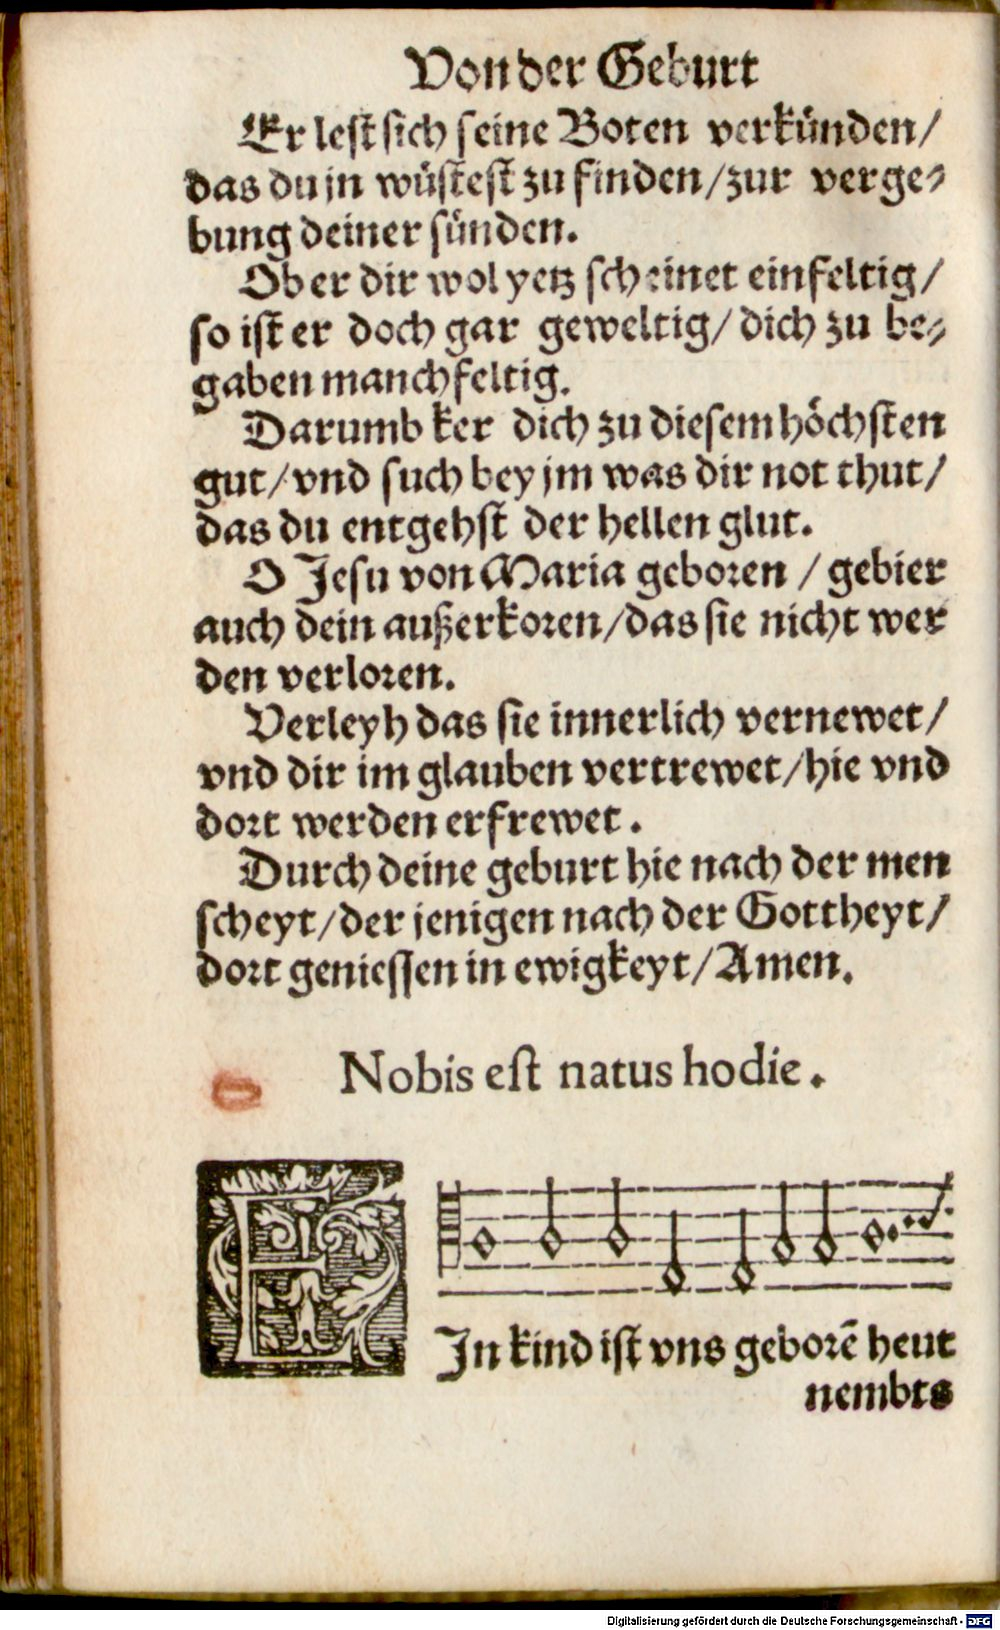 Von der Geburt
Er lest sich seine Boten verkünden/
das du jn wüstest zu finden/zur verge-
bung deiner sünden.
Ob er dir wol yetz scheinet einfeltig/
so ist er doch gar geweltig/dich zu be-
gaben manchfeltig.
Darumb ker dich zu diesem höchsten
gut/vnd such bey jm was dir not thut/
das du entgehst der hellen glut.
O Jesu von Maria geboren / gebier
auch dein außerkoren/das sie nicht wer
den verloren.
Verleyh das sie innerlich vernewet/
vnd dir im glauben vertrewet/hie vnd
dort werden erfrewet.
Durch deine geburt hie nach der men
scheyt/der jenigen nach der Gottheyt/
dort geniessen in ewigkeyt/Amen.
Nobis est natus hodie.
E
In kind ist vns geborē heut
nembts
Digitalisierung gefördert durch die Deutsche Forschungsgemeinschaft - DFG